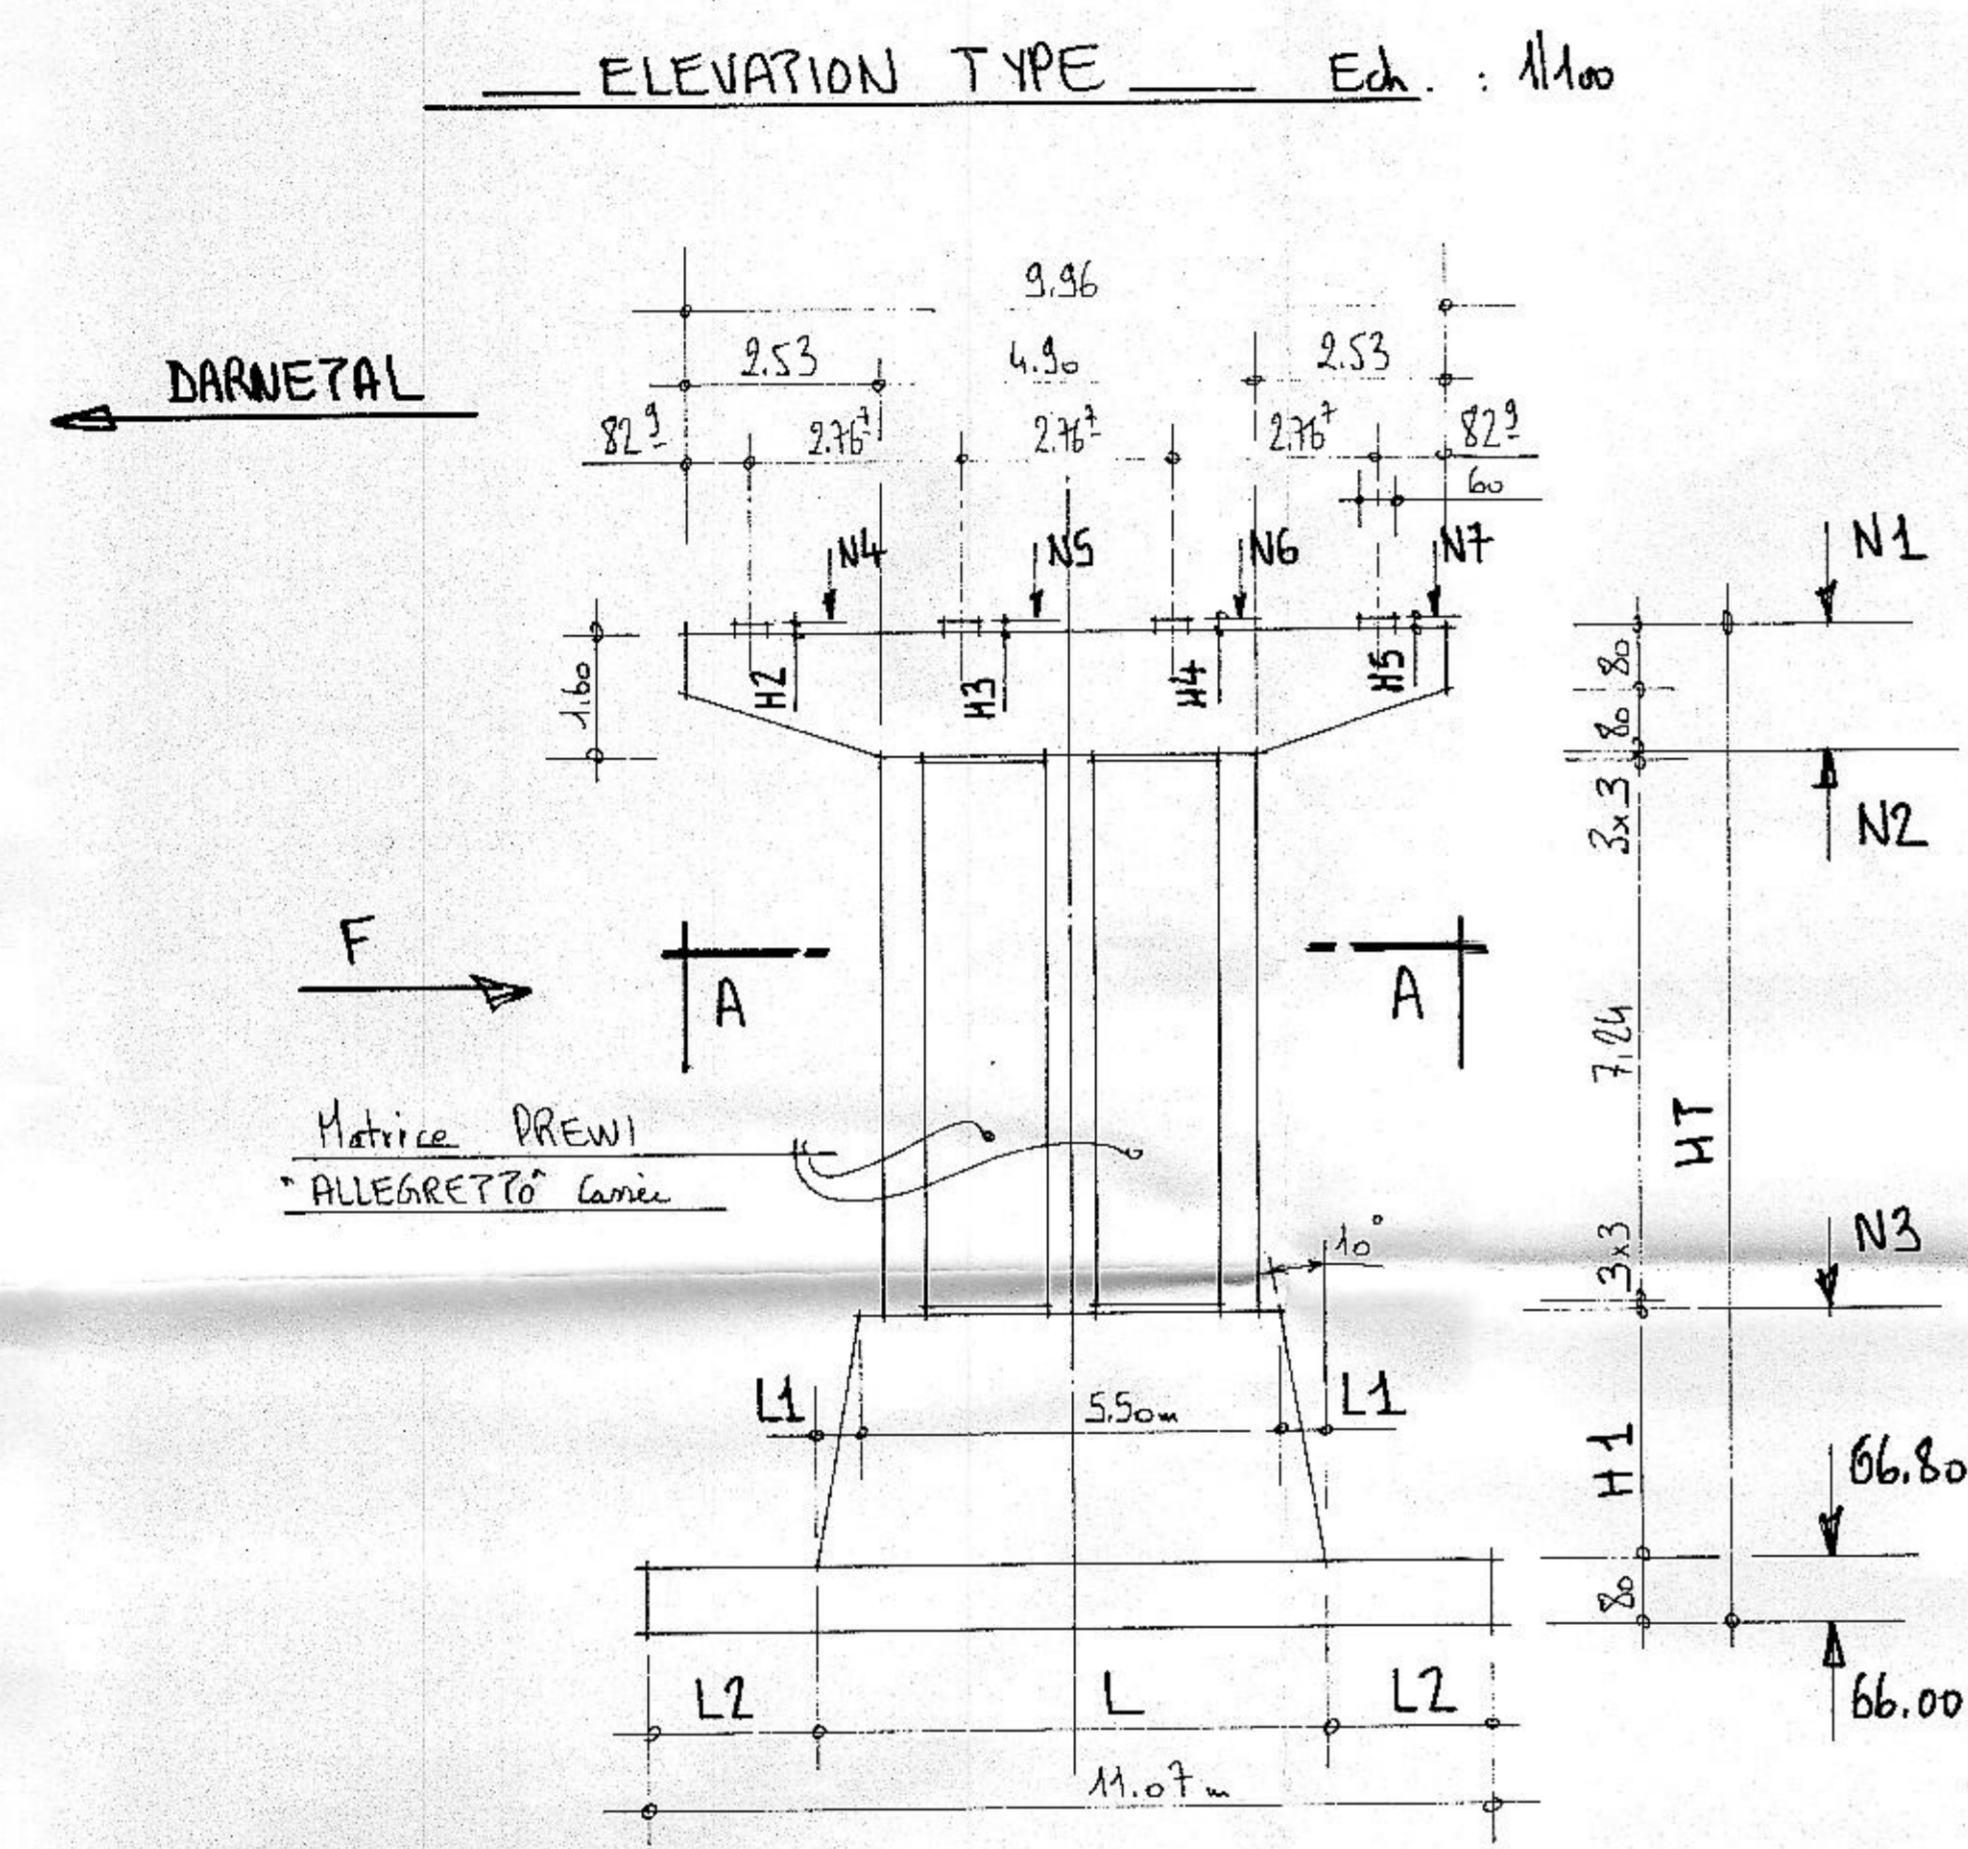 ELEVATION TYPE Ech. : 1/100
9.96
DARNETAL
2.53 4.90 2.53
82⁹ 2.76⁷ 2.76⁷ 2.76⁷ 82⁹
60
N4 N5 N6 N7 N1
H2 H3 H4 H5
1.60
80
80
3x3
N2
F
A A
7.24
HT
Matrice PREWI
"ALLEGRETTO"
10°
3x3
N3
L1 5.50m L1
H1
66.80
80
L2 L L2
66.00
11.07 m